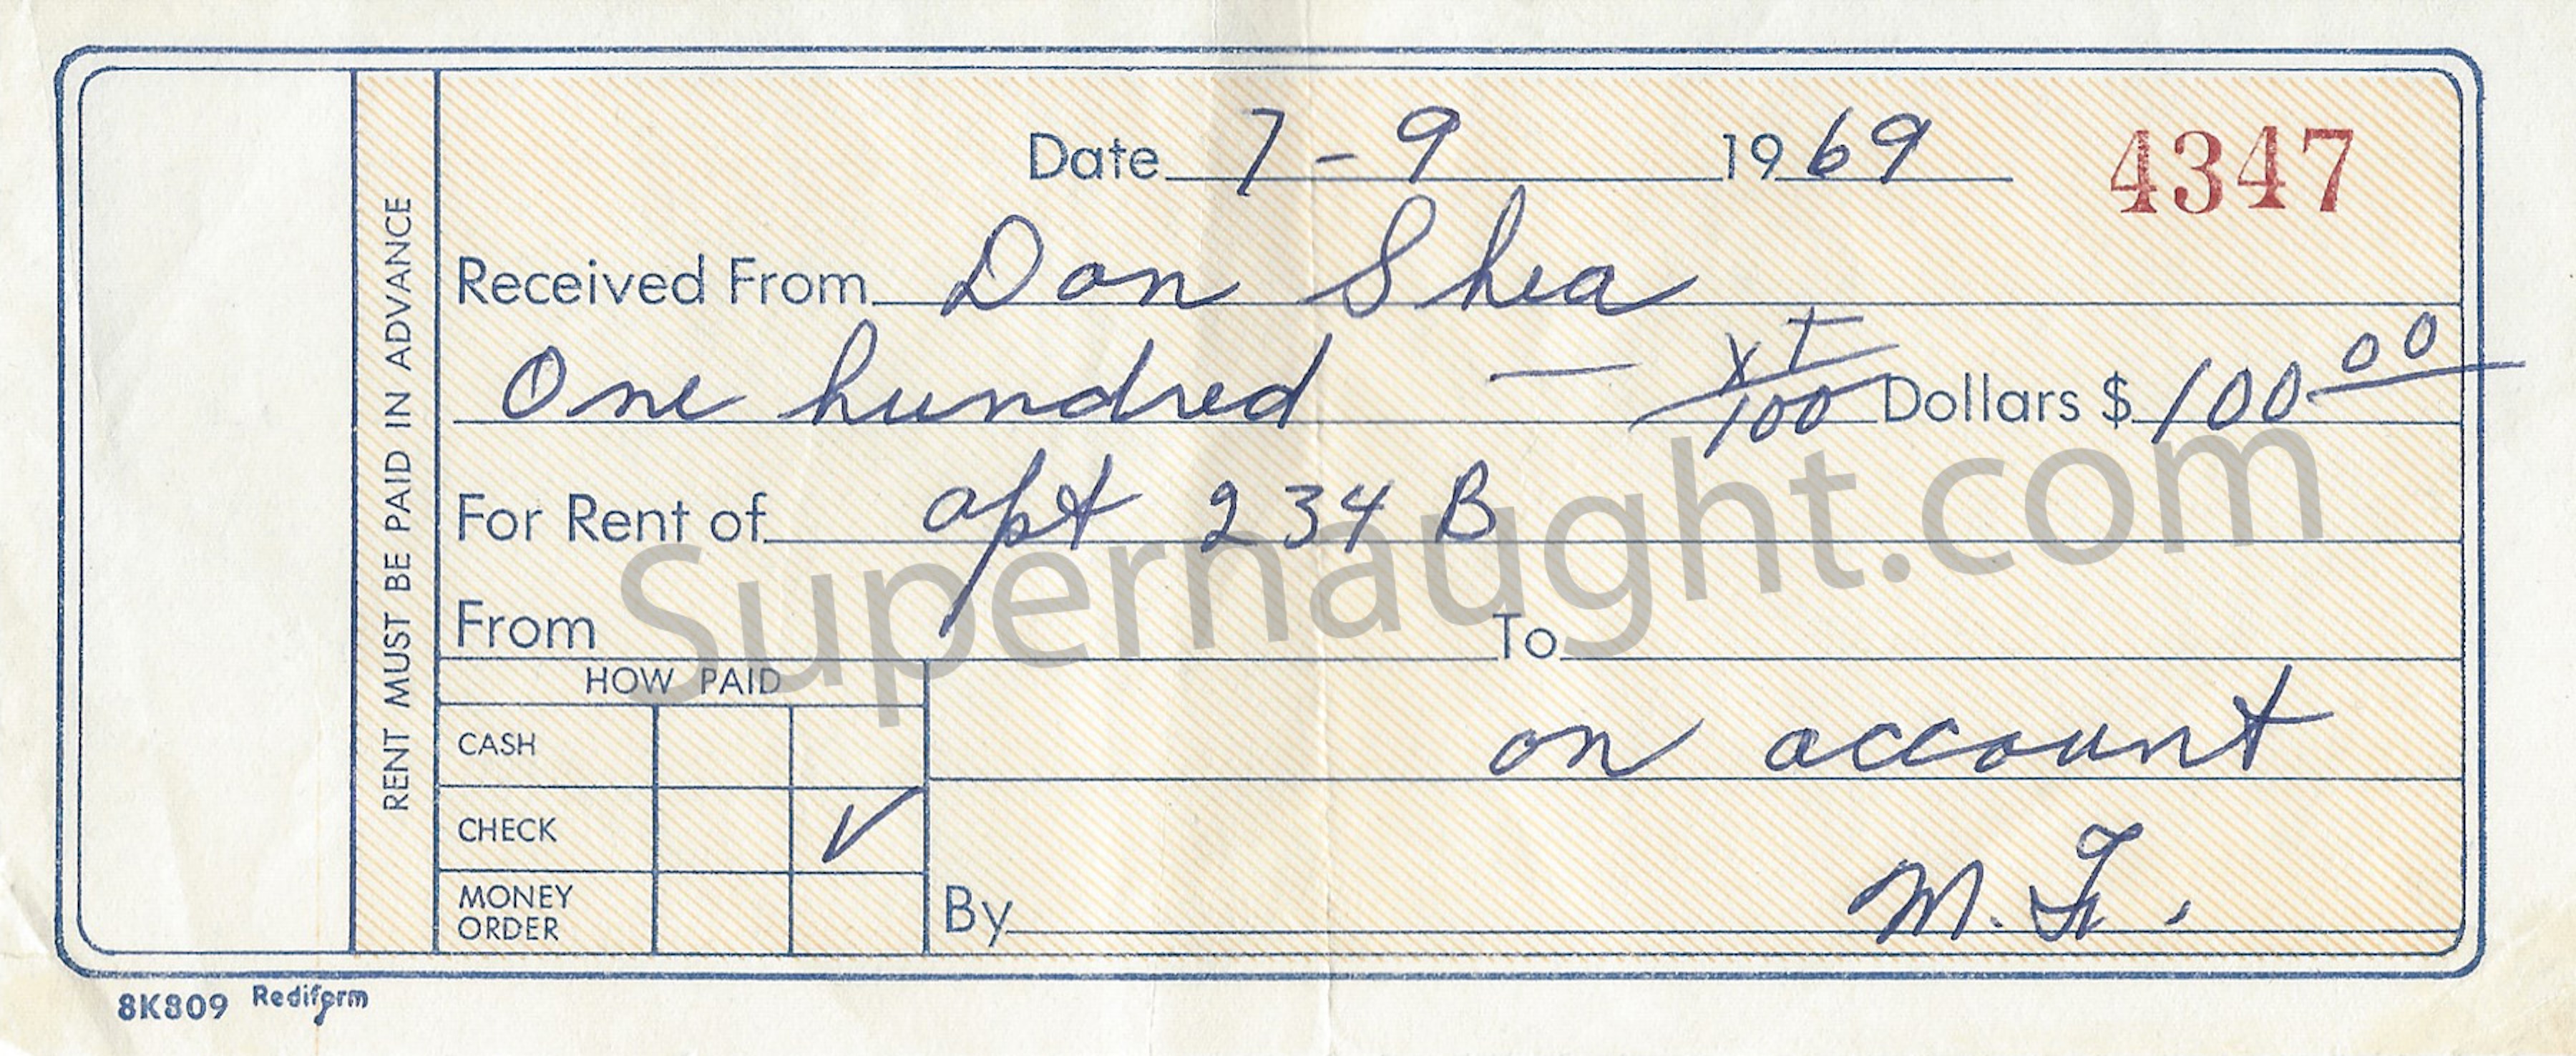 Date 7-9 1969 4347
RENT MUST BE PAID IN ADVANCE
Received From Don Shea
One hundred — /100 Dollars $ 100 00
For Rent of apt 234 B
From To
HOW PAID
CASH
on account
CHECK ✓
MONEY ORDER
By M. F.
8K809 Rediform
Supernaught.com